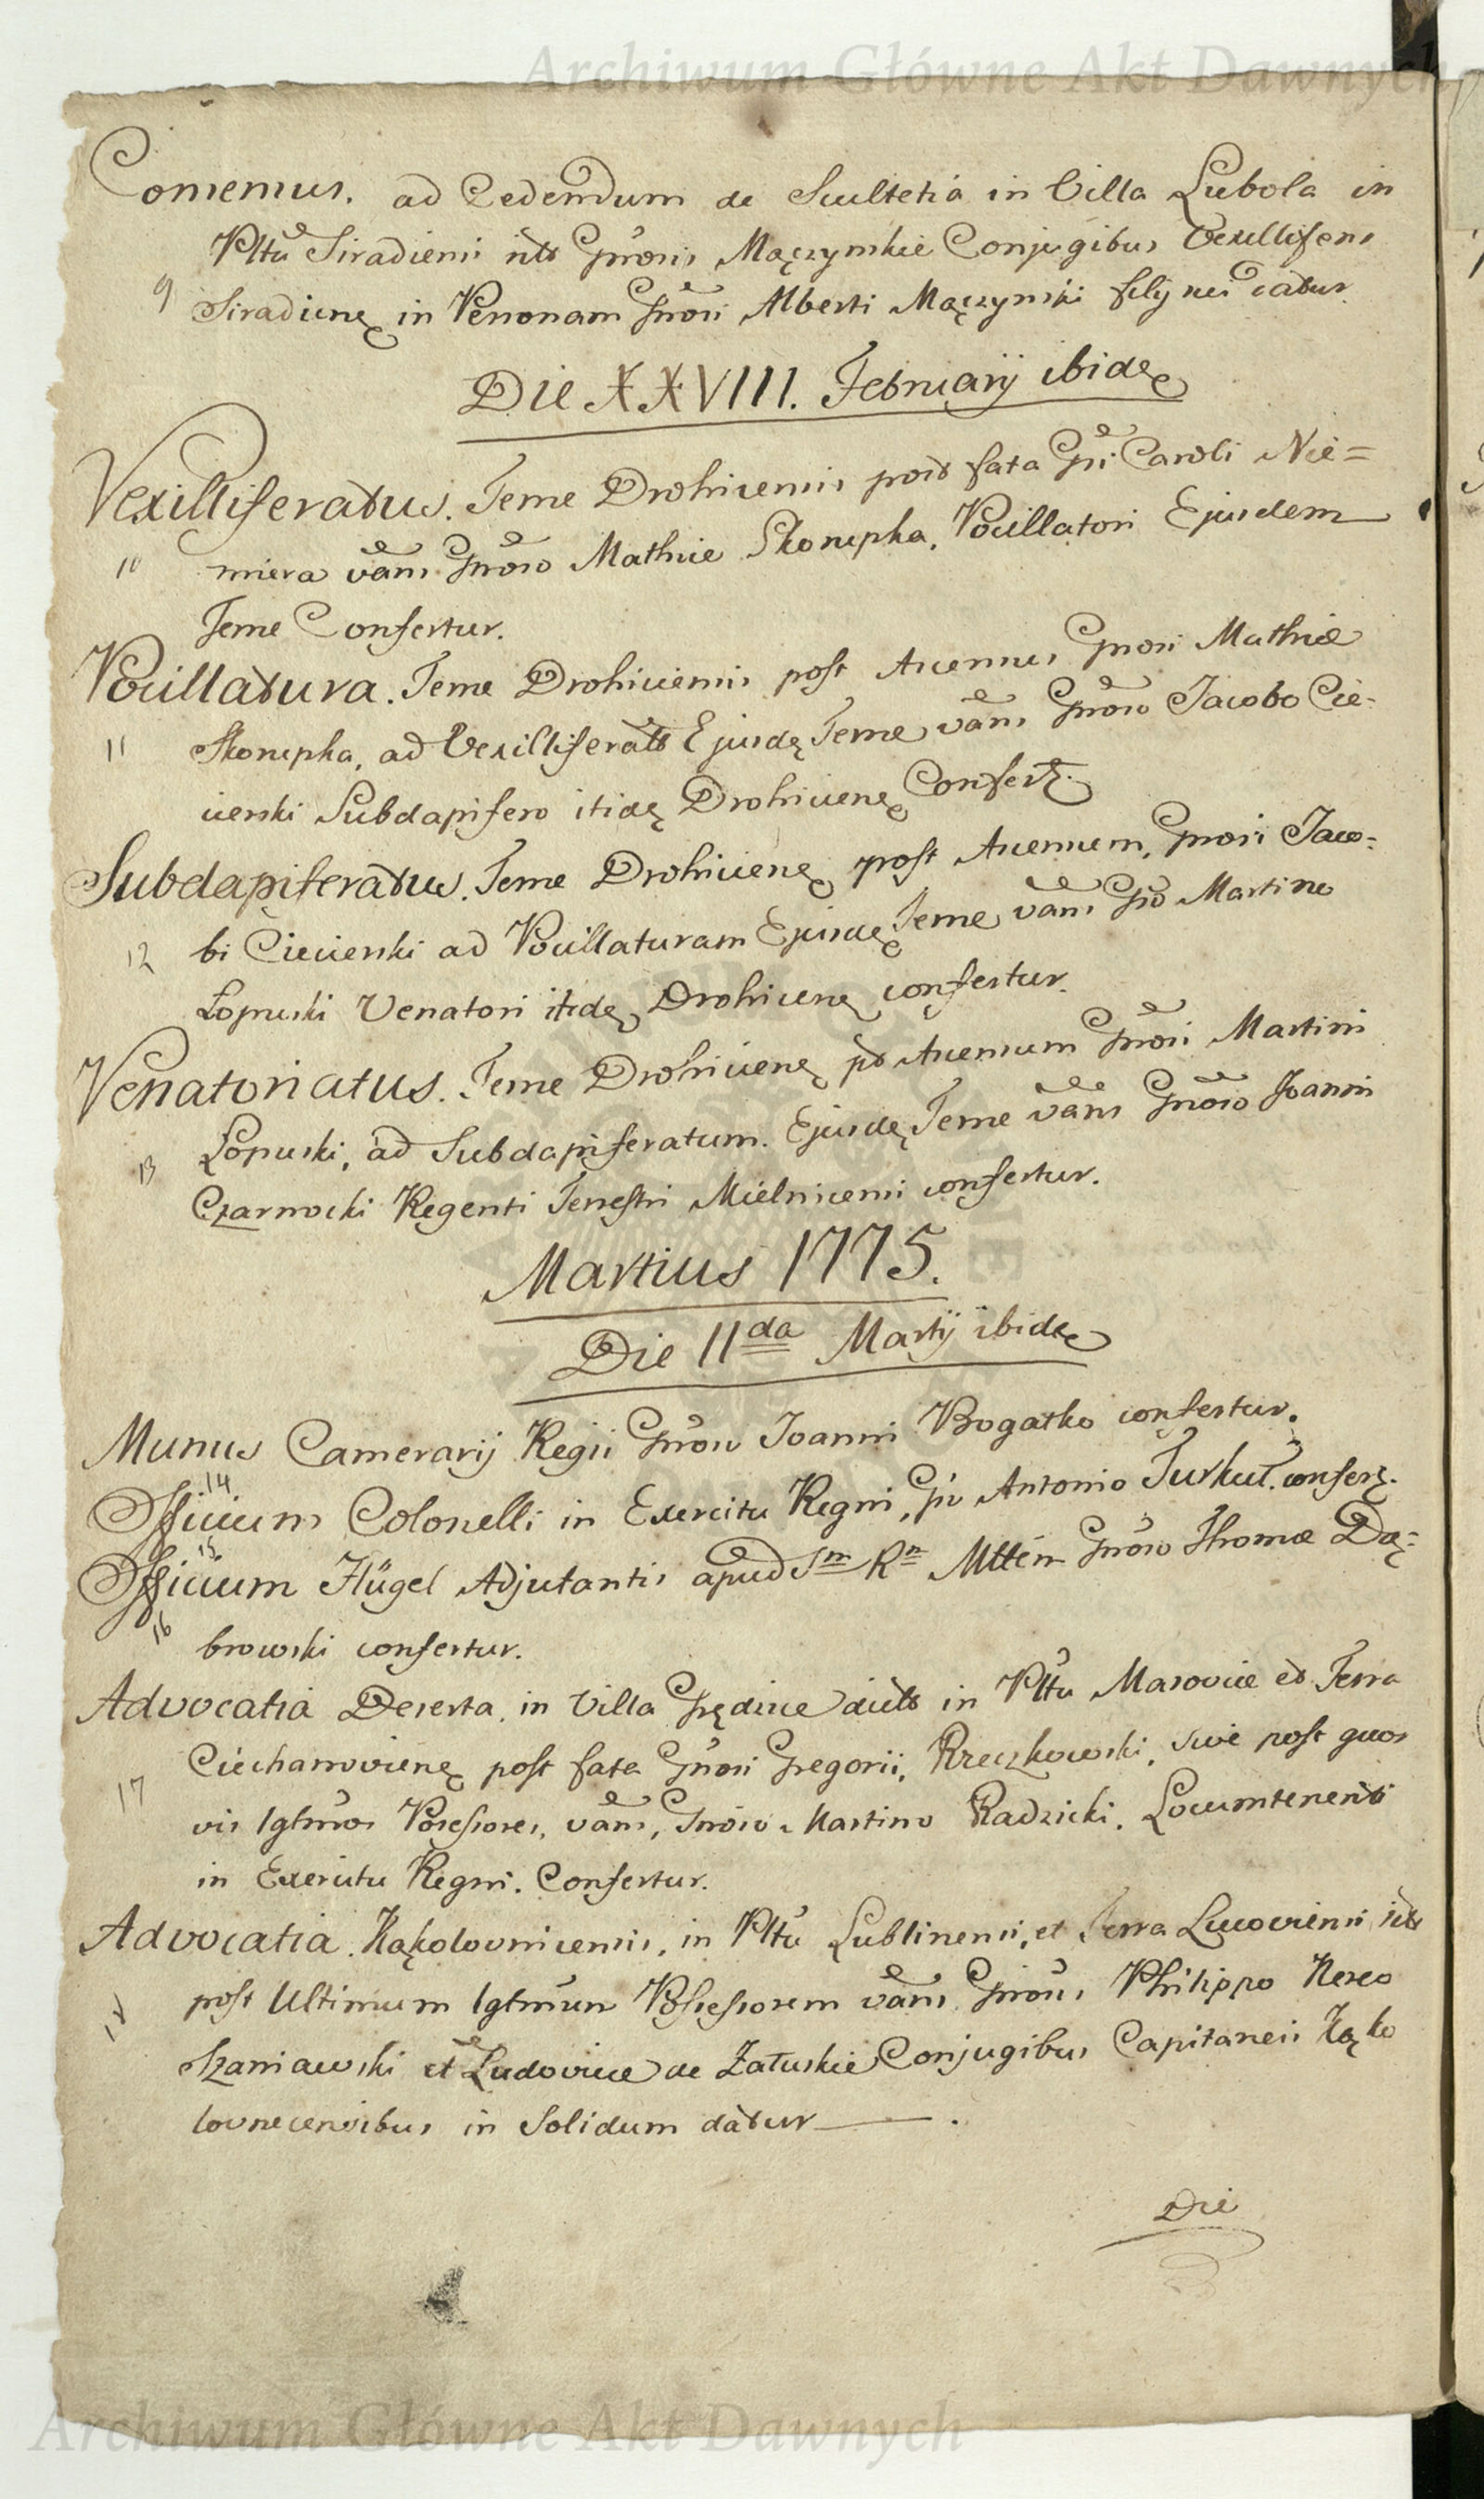 Archiwum Główne Akt Dawnych
Consensus. ad Cedendum de Scultetia in Villa Lubola in
Pltu Siradiensi sito Gnosis Mączynskie Conjugibus Vexilliferis
9 Siradiensę in Personam Gnosi Alberti Mączynski filij sui datur.
Die XXVIII. Februarij ibidę
Vexilliferatus. Terræ Drohicensis post fata Gsi Caroli Nie=
10 miera vans Gnoso Mathiæ Skorupka, Pocillatori Ejusdem
Terræ Confertur.
Pocillatura. Terræ Drohicensis post Ascensus Gnosi Mathiæ
11 Skorupka, ad Vexilliferatū Ejusdę Terræ vans Gnoso Jacobo Cie=
cierski Subdapifero itidę Drohicensę Confert.
Subdapiferatus. Terræ Drohicensę post Ascensum, Gnosi Jaco=
12 bi Ciecierski ad Pocillaturam Ejusdę Terræ vans Gso Martino
Łopuski Venatori itidę Drohicensę confertur.
Venatoriatus. Terræ Drohicensę pt Ascensum Gnosi Martini
13 Łopuski, ad Subdapiferatum. Ejusdę Terræ vans Gnoso Joanni
Czarnocki Regenti Terrestri Mielnicensi confertur.
Martius 1775.
Die 11da Martij ibidę
Munus Camerarij Regii Gnoso Joanni Bogatko confertur.
14
Officium Colonelli in Exercitu Regni, Gso Antonio Turkuł. confert.
15
Officium Flügel Adjutantis apud Sm Rm Mttem Gnoso Thomæ Dą=
16 browski confertur.
Advocatia Deserta, in Villa Grędzice dicta in Pltu Masoviæ et Terra
Ciechanoviensę post fata Gnosi Gregorii, Rzeczkowski, sive post quos
17 vis Igtmos Possessores, vans, Gnoso Martino Radzicki. Locumtenenti
in Exercitu Regni. Confertur.
Advocatia. Kąkolovnicensis, in Pltu Lublinensi, et Terra Lucoviensi sita
18 post Ultimum Igtmum Possessorem vans Gnosis Philippo Nereo
Szaniawski et Ludovicæ de Załuskie Conjugibus Capitaneis Kąko
lovnecensibus in Solidum datur .
Die
Archiwum Główne Akt Dawnych